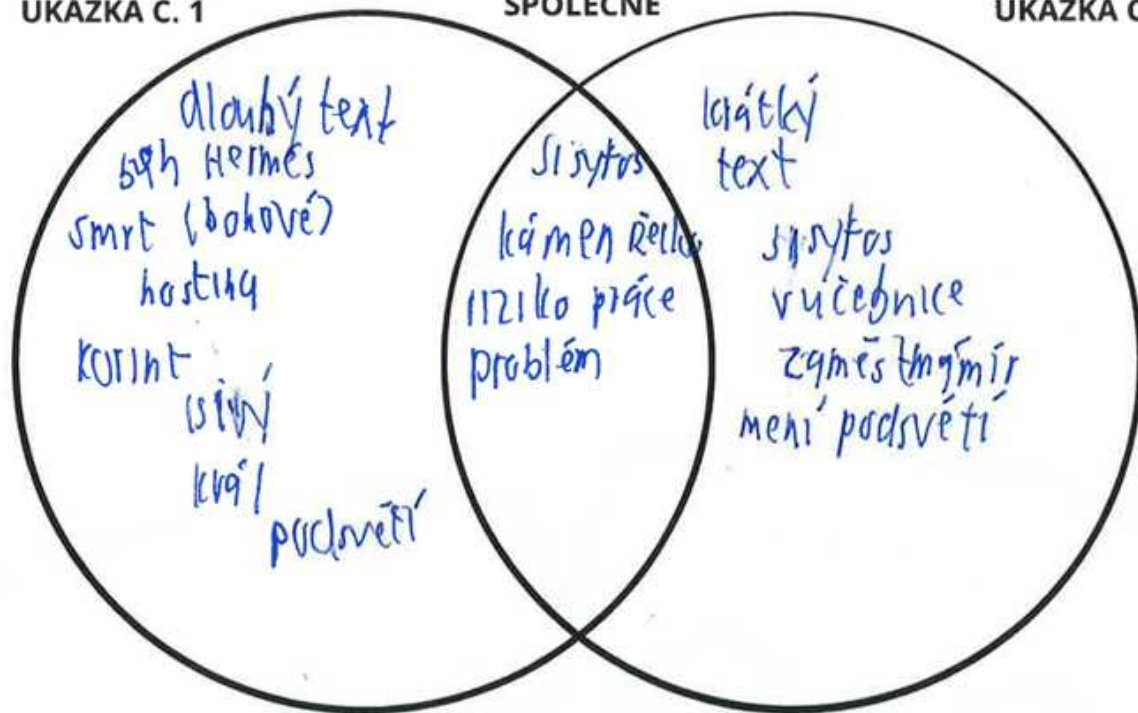 UKÁZKA Č. 1
SPOLEČNÉ
UKÁZKA Č
dlouhý text
bůh Hermés
smrt (bohové)
hostina
Korint
král
podsvětí
Sisyfos
kámen Řecko
práce
problém
krátký
text
sisyfos
v učebnice
není podsvětí